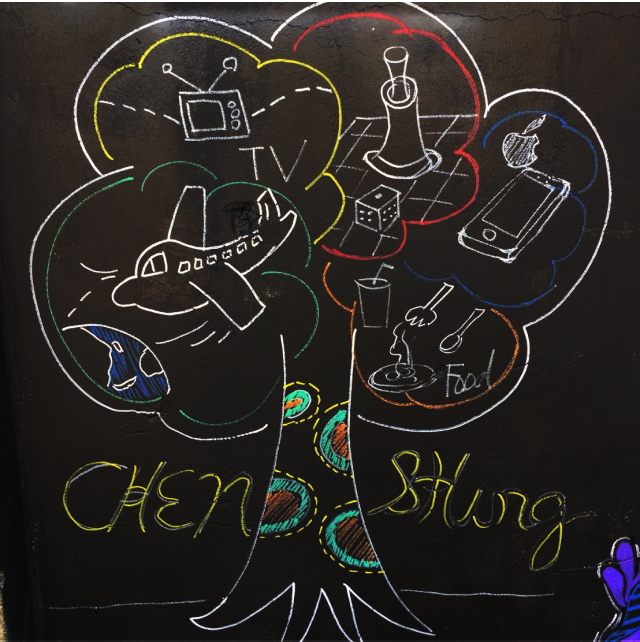 TV
Food
CHEN SHung